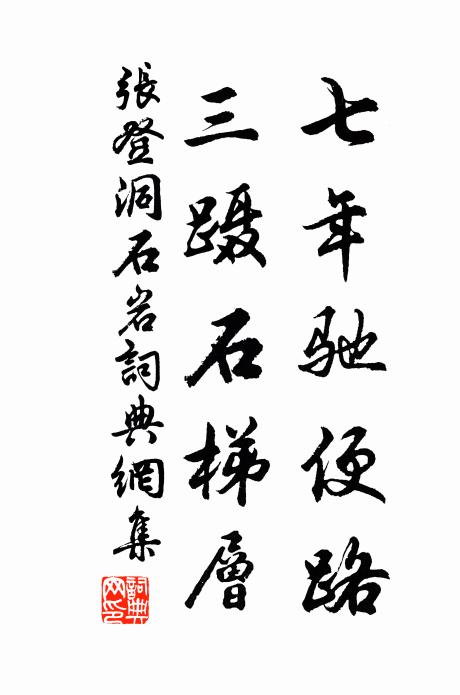 七年驰便路
三蹑石梯層
張登洞石岩詞典網集
詞典网印